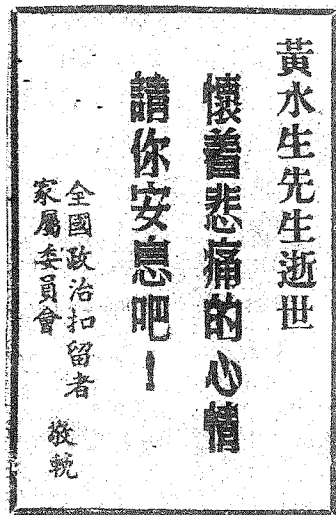 黃水生先生逝世
懷着悲痛的心情
請你安息吧！
全國政治扣留者
家屬委員會
敬輓